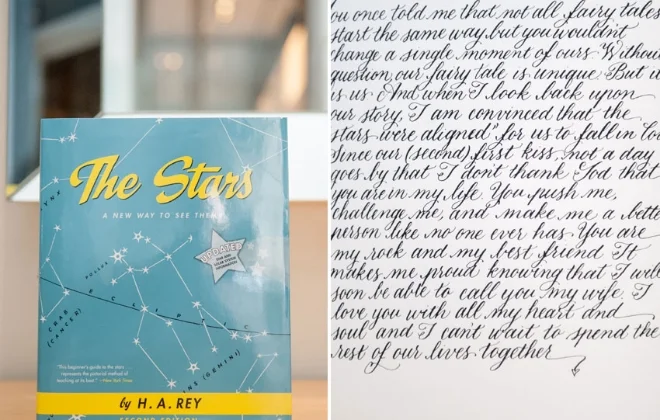 The Stars
A NEW WAY TO SEE THEM
UPDATED
LYNX
POLLUX
CRAB
(CANCER)
ECLIPTIC
(GEMINI)
"This beginner's guide to the stars
represents the pictorial method of
teaching at its best." - New York Times
by H. A. REY
SECOND EDITION
ou once told me that not all fairy tales
start the same way, but you wouldn't
change a single moment of ours. Without
question, our fairy tale is unique. But it
is us. And when I look back upon
our story, I am convinced that the
stars were aligned" for us to fall in lo
Since our (second) first kiss, not a day
goes by that I don't thank God that
you are in my life. You push me,
challenge me, and make me a bette
person like no one ever has. You are
my rock and my best friend. It
makes me proud knowing that I will
soon be able to call you my wife. I
love you with all my heart and
soul and I can't wait to spend the
rest of our lives together